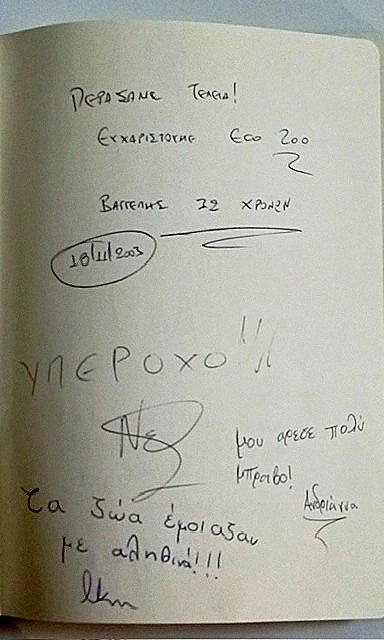 ΠΕΡΑΣΑΝΕ ΤΕΛΕΙΑ!
ΕΥΧΑΡΙΣΤΟΥΜΕ ECO ZOO
ΒΑΓΓΕΛΗΣ 12 ΧΡΟΝΩΝ
18/11/2003
ΥΠΕΡΟΧΟ!!
μου αρεσε πολύ
μπραβο!
Ανδριάννα
Τα ζώα έμοιαζαν
με αληθινά!!!